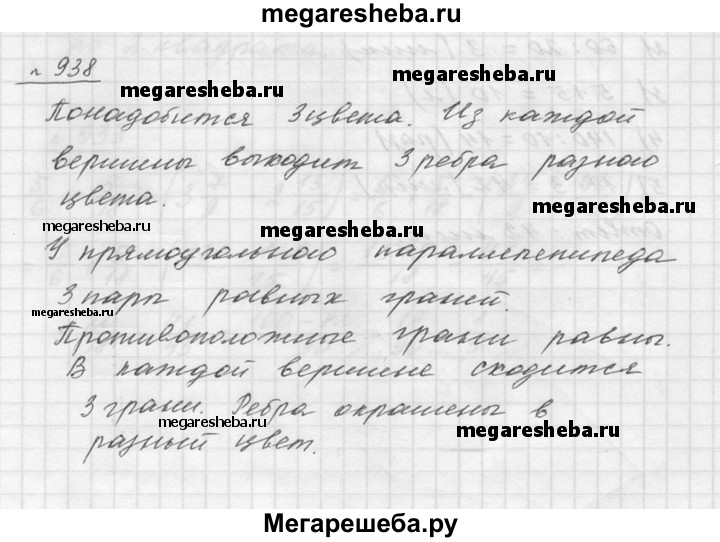 megaresheba.ru
№ 938
megaresheba.ru
megaresheba.ru
Понадобится 3 цвета. Из каждой
вершины выходит 3 ребра разного
megaresheba.ru
цвета.
megaresheba.ru
megaresheba.ru
У прямоугольного параллепипеда
3 пары равных граней.
megaresheba.ru
Противоположные грани равны.
megaresheba.ru
В каждой вершине сходится
3 грани. Ребра окрашены в
megaresheba.ru
megaresheba.ru
разный цвет.
Мегарешеба.ру